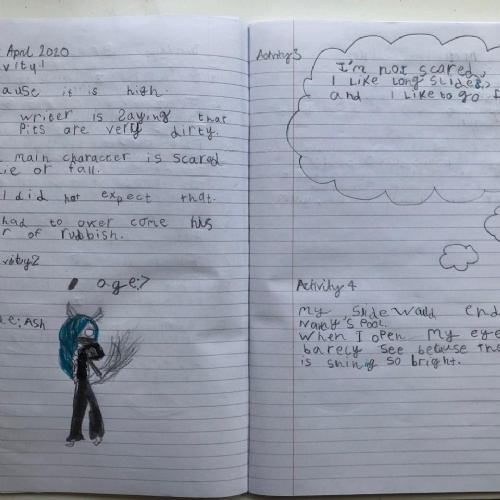 April 2020
vity 1
ause it is high.
writer is saying that
Pits are very dirty.
main character is scared
ie or fall.
I did not expect that.
had to over come his
r of rubbish.
vity 2
age: 7
e: Ash
Activity 3
I'm not scared,
I Like Long Slides,
and I like to go
Activity 4
My slide would end
Nanay's Pool.
When I open My eye
barely see because the
is shining so bright.